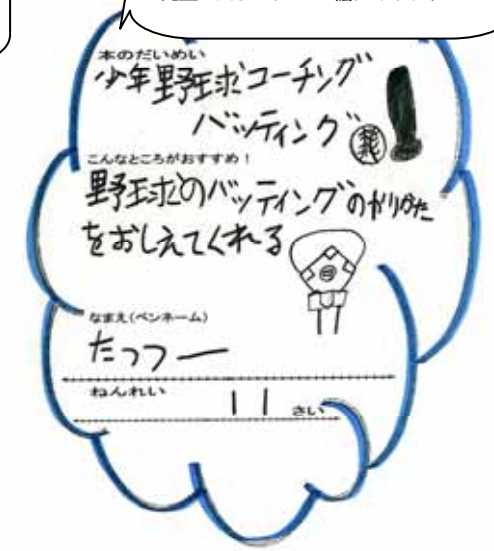 本のだいめい
少年野球コーチング
バッティング
こんなところがおすすめ！
野球のバッティングのやりかた
をおしえてくれる
なまえ(ペンネーム)
たっつー
ねんれい
11 さい